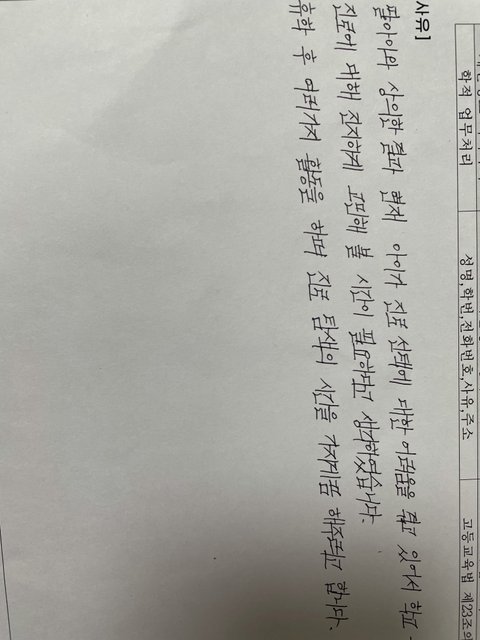 학적 업무처리
성명,학번,전화번호,사유,주소
고등교육법 제23조의
사유]
딸아이와 상의한 결과 현재 아이가 진로 선택에 대한 어려움을 겪고 있어서 학교
진로에 대해 진지하게 고민해 볼 시간이 필요하다고 생각하였습니다.
휴학 후 여러가지 활동을 하며 진로 탐색의 시간을 가지게끔 해주려고 합니다.